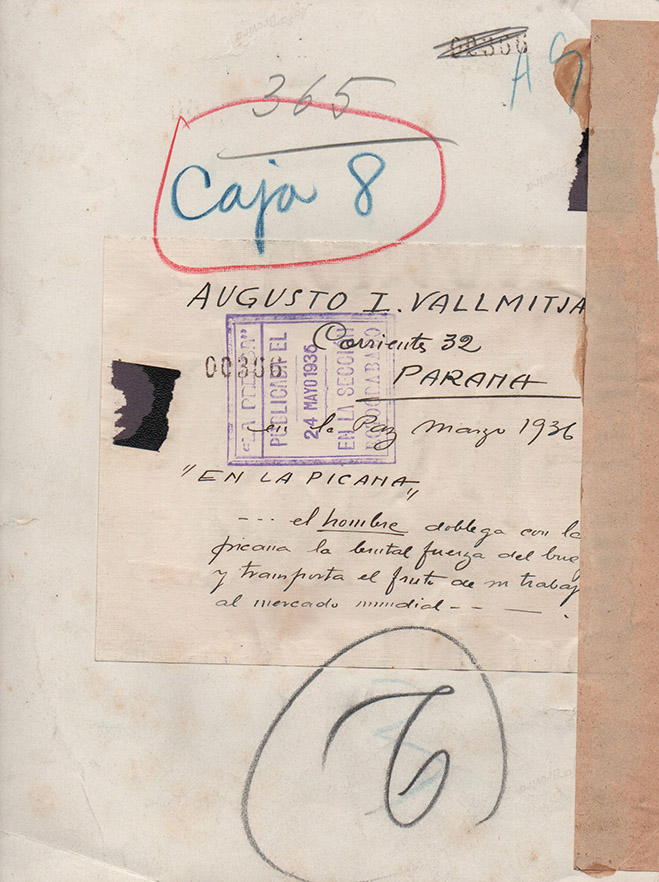 00366
A
365
Caja 8
AUGUSTO I. VALLMITJA
Corrientes 32
PARANA
00366
"LA PRENSA"
PUBLICADA EL
24 MAYO 1936
EN LA SECCION
ROTOGRABADO
en la Paz Marzo 1936
"EN LA PICANA"
--- el hombre doblega con la
picana la brutal fuerza del buey
y transporta el fruto de su trabaj
al mercado mundial -- — .